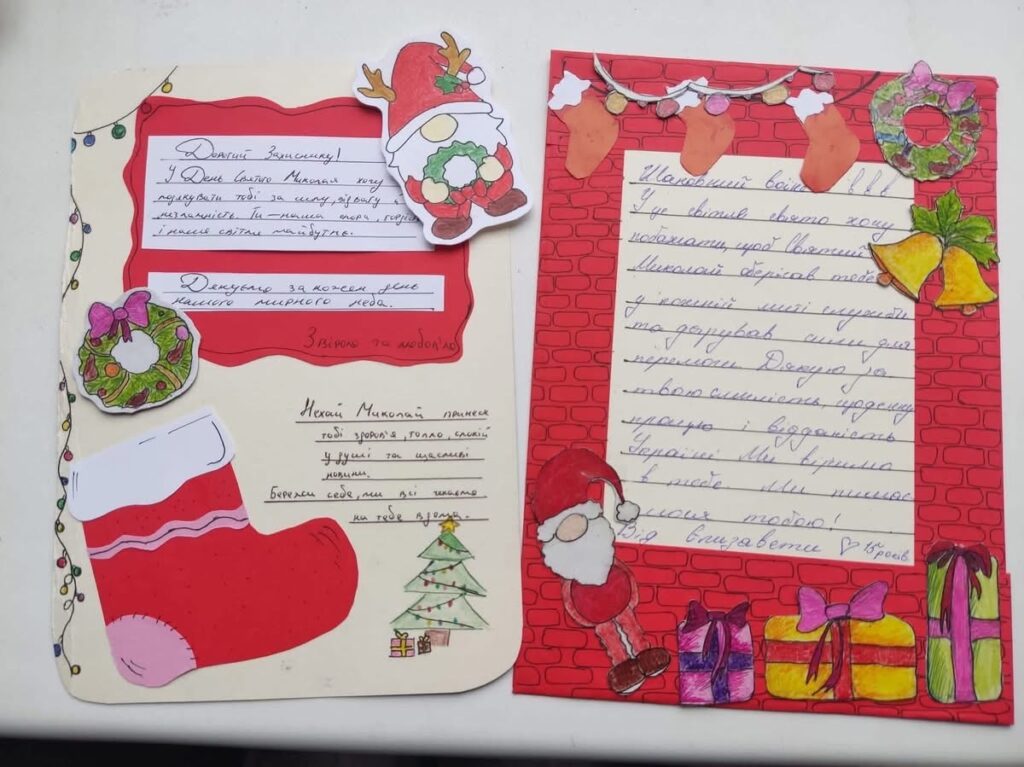 Дорогий Захиснику!
У День Святого Миколая хочу
подякувати тобі за силу, відвагу й
незламність. Ти – наша опора, гордість
і наше світле майбутнє.
Дякуємо за кожен день
нашого мирного неба.
З вірою та любов'ю
Нехай Миколай принесе
тобі здоров'я, тепло, спокій
у душі та щасливі
новини.
Бережи себе, ми всі чекаємо
на тебе вдома.
Шановний воїне!!!
У це світле свято хочу
побажати, щоб Святий
Миколай оберігав тебе
у кожній миті служби
та дарував сили для
перемоги. Дякую за
твою сміливість, щоденну
працю і відданість
Україні. Ми віримо
в тебе. Ми пишає
мося тобою!
Від Єлизавети 15 років